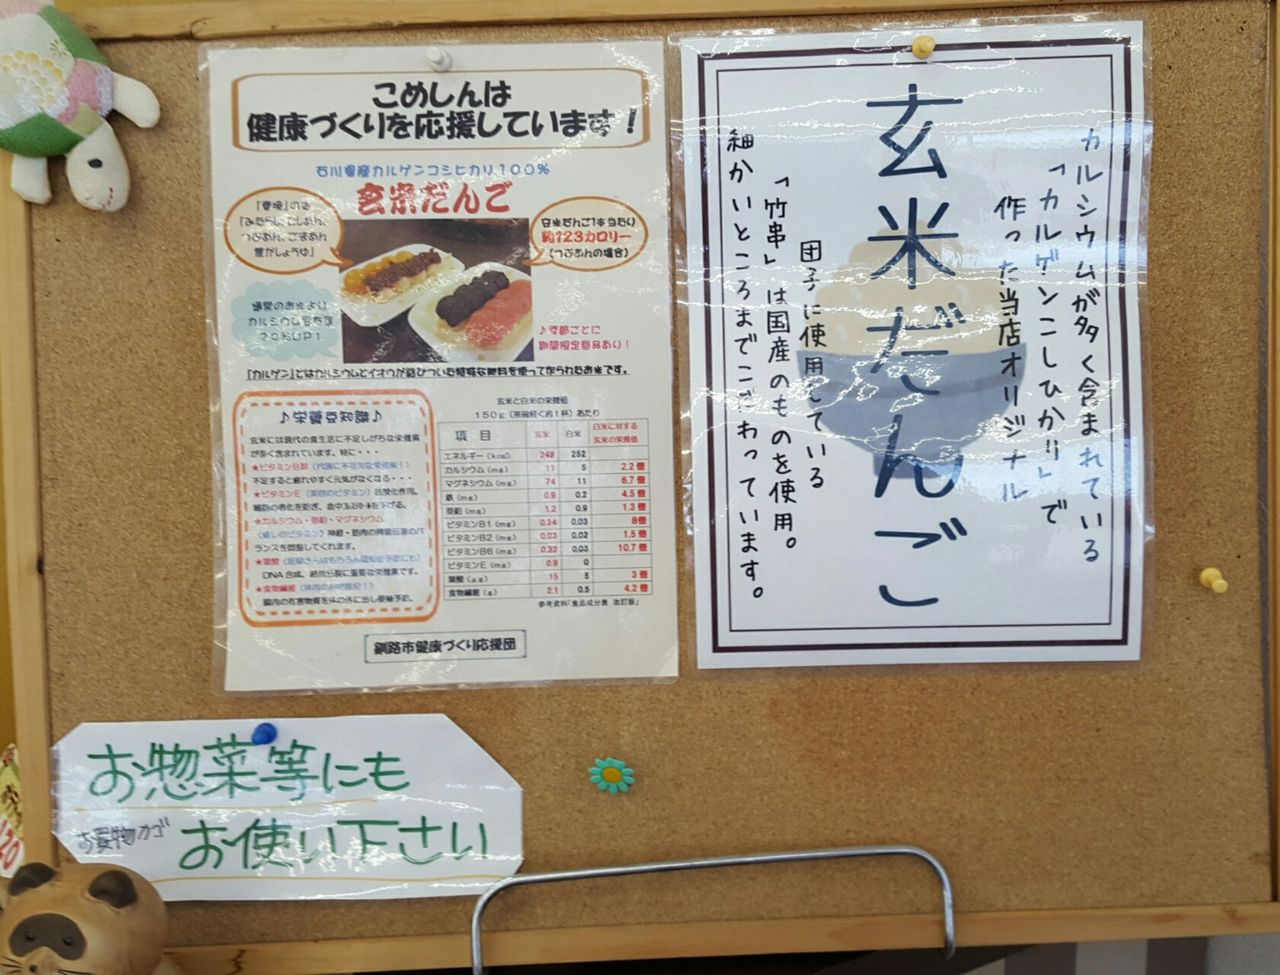 こめしんは
健康づくりを応援しています!
石川県産カルゲンコシヒカリ100%
玄米だんご
「みたらし、こしあん、
つぶあん、ごまあん
玄米だんご1本当たり
約123カロリー
(つぶあんの場合)
通常のお米より
カルシウム含有量
20%UP!
♪季節ごとに
期間限定商品あり!
「カルゲン」とはカルシウムとイオウが結びついた特殊な肥料を使って作られるお米です。
♪栄養豆知識♪
玄米には現代の食生活に不足しがちな栄養素
が多く含まれています。特に・・・
★ビタミンB群(代謝に不可欠な栄養素!)
不足すると疲れやすく元気がなくなる・・・
★ビタミンE(美容のビタミン)抗酸化作用。
細胞の老化を防ぎ、血中コレステロールを下げる。
★カルシウム・亜鉛・マグネシウム
(癒しのビタミン)神経・筋肉の興奮伝達のバ
ランスを調整してくれます。
DNA合成、細胞分裂に重要な栄養素です。
★食物繊維
腸内の有害物質を体の外に出し便秘予防。
玄米と白米の栄養価
150g(茶碗軽く約1杯)あたり
項目 玄米 白米 白米に対する玄米の栄養価
エネルギー(kcal) 248 252
カルシウム(mg) 11 5 2.2倍
マグネシウム(mg) 74 11 6.7倍
鉄(mg) 0.9 0.2 4.5倍
亜鉛(mg) 1.2 0.9 1.3倍
ビタミンB1(mg) 0.24 0.03 8倍
ビタミンB2(mg) 0.03 0.02 1.5倍
ビタミンB6(mg) 0.32 0.03 10.7倍
ビタミンE(mg) 0.9 0
葉酸(μg) 15 5 3倍
食物繊維(g) 2.1 0.5 4.2倍
参考資料「食品成分表 改訂版」
釧路市健康づくり応援団
カルシウムが多く含まれている
「カルゲンこしひかり」で
作った当店オリジナル
玄米だんご
団子に使用している
「竹串」は国産のものを使用。
細かいところまでこだわっています。
お惣菜等にも
お買物カゴ お使い下さい
20